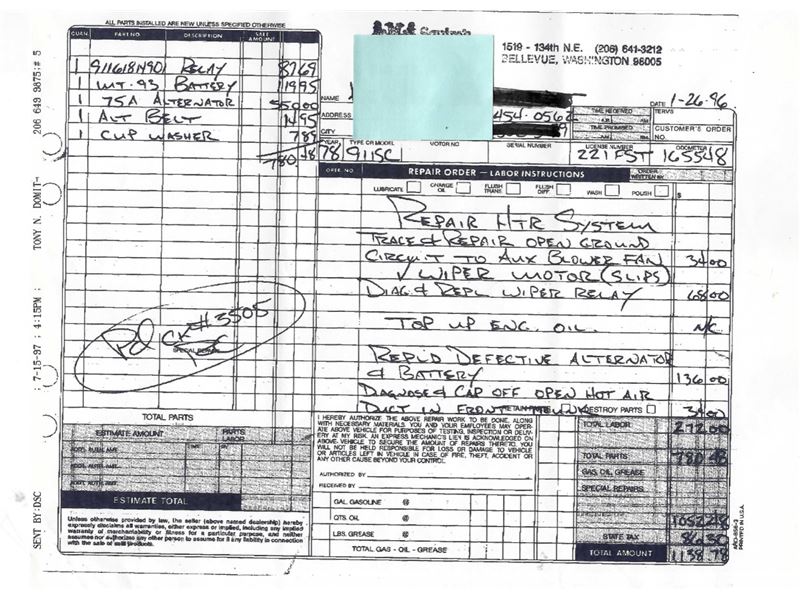 ALL PARTS INSTALLED ARE NEW UNLESS SPECIFIED OTHERWISE
QUAN. PART NO. DESCRIPTION SALE AMOUNT
1 91161811901 RELAY 8769
1 INT. 93 BATTERY 11995
1 75A ALTERNATOR 55000
1 ALT BELT 1495
1 CUP WASHER 789
780 48
1519 - 134th N.E. (206) 641-3212
BELLEVUE, WASHINGTON 98005
NAME
DATE 1-26-96
ADDRESS
454-0562
TIME RECEIVED
A.M. P.M.
TERMS
CITY
TIME PROMISED
A.M. P.M.
CUSTOMER'S ORDER NO.
YEAR TYPE OR MODEL MOTOR NO. SERIAL NUMBER LICENSE NUMBER ODOMETER
78 911SC 221FST 165548
OPER. NO. REPAIR ORDER — LABOR INSTRUCTIONS ORDER WRITTEN BY
LUBRICATE CHANGE OIL FLUSH TRANS. FLUSH DIFF. WASH POLISH $
REPAIR HTR SYSTEM
TRACE & REPAIR OPEN GROUND
CIRCUIT TO AUX BLOWER FAN 3400
✓ WIPER MOTOR (SLIPS)
DIAG & REPL WIPER RELAY 6800
TOP UP ENG. OIL. N/C
REPL'D DEFECTIVE ALTERNATOR
& BATTERY 13600
DIAGNOSE & CAP OFF OPEN HOT AIR
DUCT IN FRONT 3400
DESTROY PARTS
Pd CK #3505
TOTAL PARTS
ESTIMATE AMOUNT PARTS LABOR
ESTIMATE TOTAL
Unless otherwise provided by law, the seller (above named dealership) hereby
expressly disclaims all warranties, either express or implied, including any implied
warranty of merchantability or fitness for a particular purpose, and neither
assumes nor authorizes any other person to assume for it any liability in connection
with the sale of said products.
I HEREBY AUTHORIZE THE ABOVE REPAIR WORK TO BE DONE ALONG
WITH NECESSARY MATERIALS. YOU AND YOUR EMPLOYEES MAY OPER-
ATE ABOVE VEHICLE FOR PURPOSES OF TESTING, INSPECTION OR DELIV-
ERY AT MY RISK. AN EXPRESS MECHANIC'S LIEN IS ACKNOWLEDGED ON
ABOVE VEHICLE TO SECURE THE AMOUNT OF REPAIRS THERETO. YOU
WILL NOT BE HELD RESPONSIBLE FOR LOSS OR DAMAGE TO VEHICLE
OR ARTICLES LEFT IN VEHICLE IN CASE OF FIRE, THEFT, ACCIDENT OR
ANY OTHER CAUSE BEYOND YOUR CONTROL.
AUTHORIZED BY
RECEIVED BY
GAL. GASOLINE @
QTS. OIL @
LBS. GREASE @
TOTAL GAS - OIL - GREASE
TOTAL LABOR 27200
TOTAL PARTS 780.48
GAS, OIL, GREASE
SPECIAL REPAIRS
1052248
STATE TAX 8630
TOTAL AMOUNT 1138.78
PRINTED IN U.S.A.
SENT BY:DSC ; 7-15-97 ; 4:15PM ; TONY N. DOMIT→ 206 649 9875:# 5